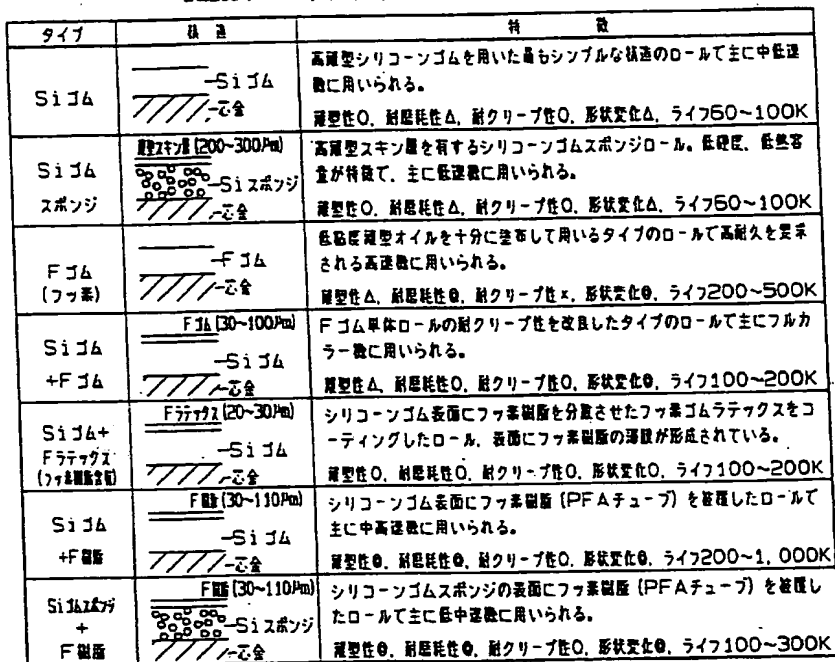 タイプ 構造 特徴
Siゴム
Siゴム
芯金
高離型シリコーンゴムを用いた最もシンプルな構造のロールで主に中低速
機に用いられる。
離型性O、耐磨耗性Δ、耐クリープ性O、形状変化Δ、ライフ60~100K
Siゴム
スポンジ
離型スキン層(200~300μm)
Siスポンジ
芯金
高離型スキン層を有するシリコーンゴムスポンジロール。低硬度、低熱容
量が特徴で、主に低速機に用いられる。
離型性O、耐磨耗性Δ、耐クリープ性O、形状変化Δ、ライフ60~100K
Fゴム
(フッ素)
Fゴム
芯金
低粘度離型オイルを十分に塗布して用いるタイプのロールで高耐久を要求
される高速機に用いられる。
離型性Δ、耐磨耗性◎、耐クリープ性×、形状変化◎、ライフ200~500K
Siゴム
+Fゴム
Fゴム(30~100μm)
Siゴム
芯金
Fゴム単体ロールの耐クリープ性を改良したタイプのロールで主にフルカ
ラー機に用いられる。
離型性Δ、耐磨耗性O、耐クリープ性O、形状変化◎、ライフ100~200K
Siゴム+
Fラテックス
(フッ素樹脂含有)
Fラテックス(20~30μm)
Siゴム
芯金
シリコーンゴム表面にフッ素樹脂を分散させたフッ素ゴムラテックスをコ
ーティングしたロール、表面にフッ素樹脂の薄膜が形成されている。
離型性O、耐磨耗性O、耐クリープ性O、形状変化O、ライフ100~200K
Siゴム
+F樹脂
F樹脂(30~110μm)
Siゴム
芯金
シリコーンゴム表面にフッ素樹脂(PFAチューブ)を被覆したロールで
主に中高速機に用いられる。
離型性◎、耐磨耗性◎、耐クリープ性O、形状変化◎、ライフ200~1,000K
Siゴムスポンジ
+
F樹脂
F樹脂(30~110μm)
Siスポンジ
芯金
シリコーンゴムスポンジの表面にフッ素樹脂(PFAチューブ)を被覆し
たロールで主に低中速機に用いられる。
離型性◎、耐磨耗性◎、耐クリープ性O、形状変化◎、ライフ100~300K